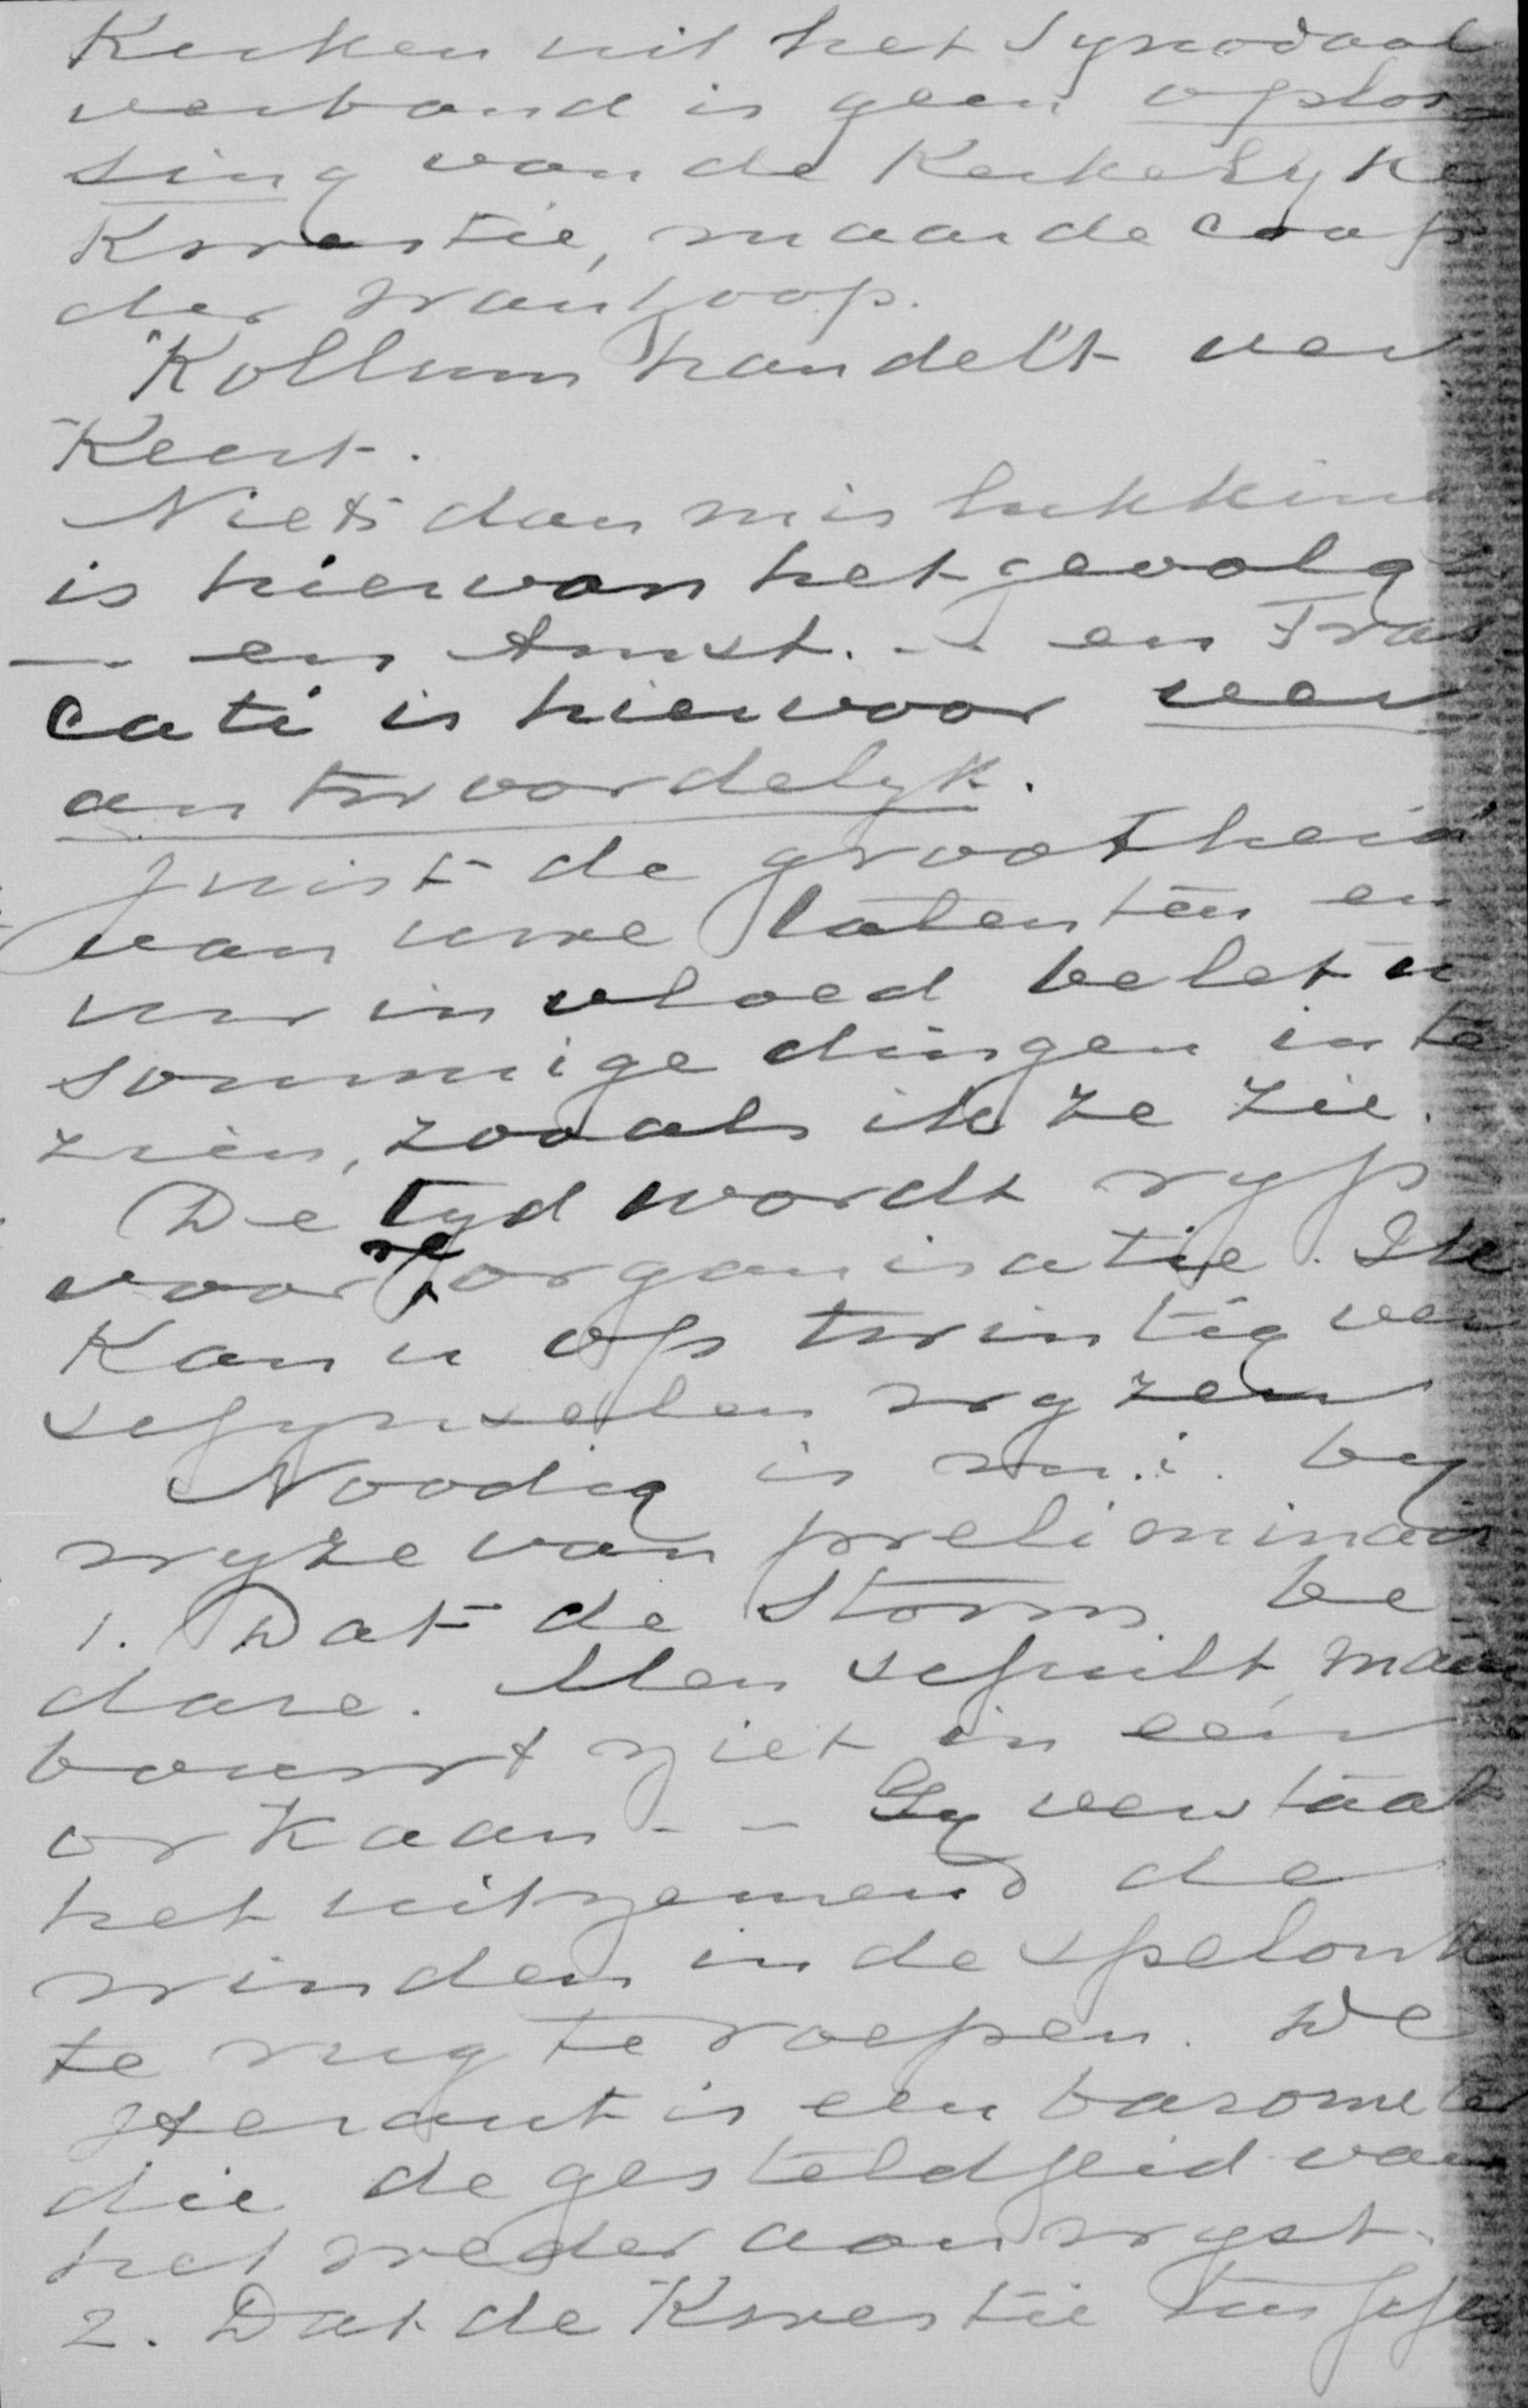 Kerken uit het Synodaal
verband is geen oplos-
sing van de Kerkelyke
Kwestie, maar de coup
der wanhoop.
Kollum handelt ver
Keert.
Niets dan mislukking
is hiervan het gevolg
— en Amst. — en Fras
cati is hiervoor ver
antwoordelyk.
Juist de grootheid
van uwe talenten en
uw invloed belet u
sommige dingen in te
zien, zooals ik ze zie.
De tyd wordt ryp
voor reorganisatie. Ik
Kan u op twintig ver
schynselen wyzen
Noodig is m.i. by
wyze van preliminair
1. Dat de storm be
dare. Men schuilt, maar
bouwt niet in een
orkaan - - Gy verstaat
het uitnemend de
winden in de spelonk
te rug te roepen. De
Heraut is een barometer
die de gesteldheid van
het weder aanwyst.
2. Dat de Kwestie tusschen